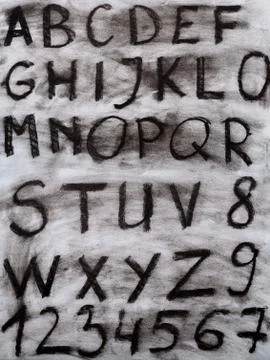 ABCDEF
GHIJKLO
MNOPQR
STUV8
WXYZ9
1234567